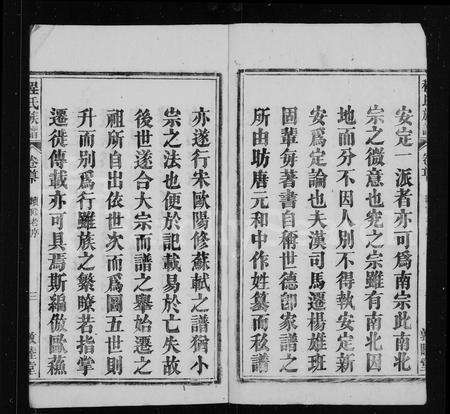 安定一派者亦可爲南宗此南北
宗之微意也究之宗雖有南北因
地而分不因人別不得執安定新
安爲定論也夫漢司馬遷楊雄班
固輩每著書自世德卽家譜之
所由昉唐元和中作姓纂而移譜
亦遂行宋歐陽修蘇軾之譜猶小
宗之法也便於記載易於亡失故
後世遂合大宗而譜之舉始遷之
祖所自出依世次而爲圖五世則
升而別爲行雖族之繁瞭若指掌
遷徙傳載亦可具焉斯編倣歐蘓
程氏族譜 卷首 三 敦睦堂